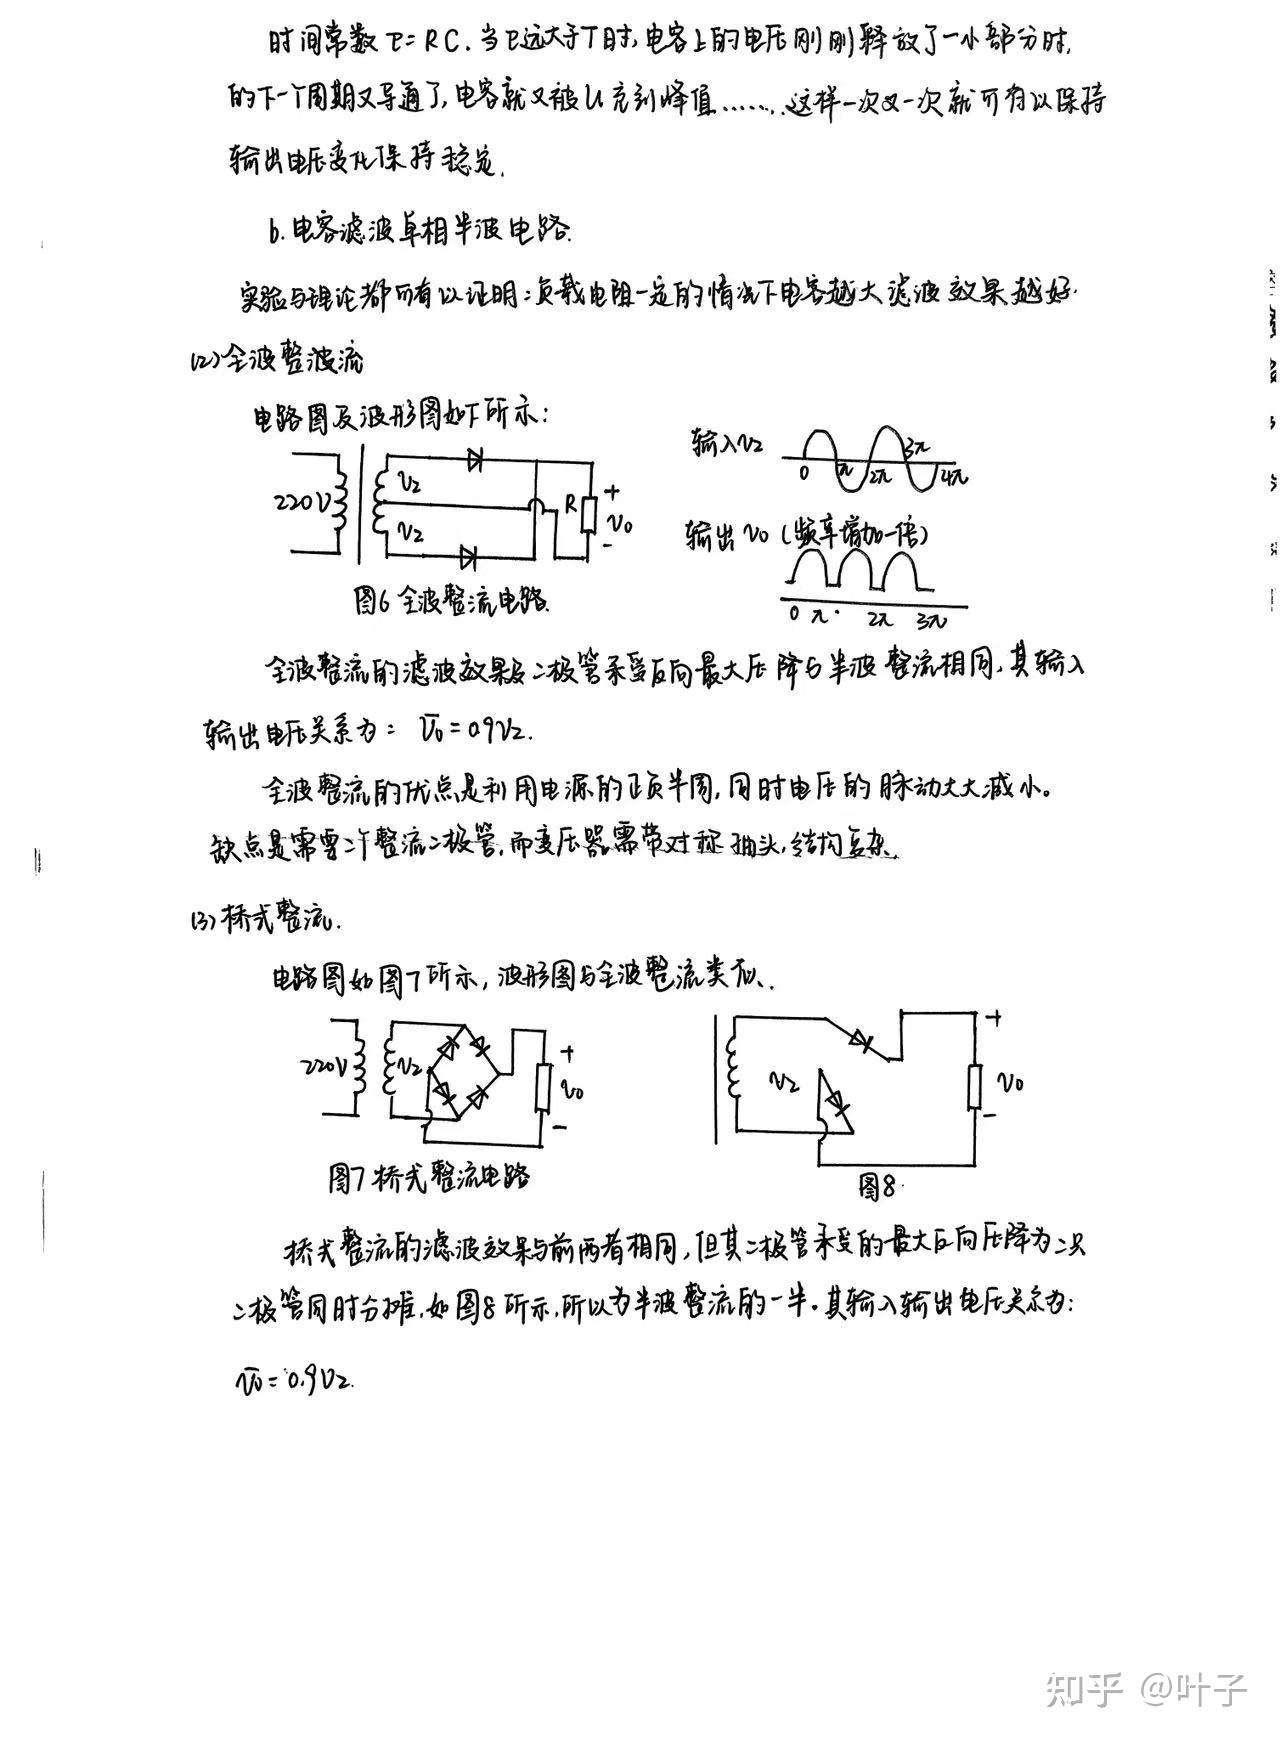 时间常数τ=RC.当τ远大于T时,电容上的电压刚刚释放了一小部分时,
的下一个周期又导通了,电容就又被U充到峰值.......这样一次又一次就可有以保持
输出电压变化保持稳定.
b.电容滤波单相半波电路.
实验与理论都可有以证明:负载电阻一定的情况下电容越大滤波效果越好.
(2)全波整波流
电路图及波形图如下所示:
输入V2
0 π 2π 3π 4π
220V V2 V2 R + V0 -
输出V0(频率增加一倍)
0 π. 2π 3π
图6 全波整流电路.
全波整流的滤波效果及二极管承受反向最大压降与半波整流相同,其输入
输出电压关系为: V̄0=0.9V2.
全波整流的优点是利用电源的正负半周,同时电压的脉动大大减小。
缺点是需要二个整流二极管,而变压器需带对称抽头,结构复杂.
(3)桥式整流.
电路图如图7所示,波形图与全波整流类似.
220V V2 + V0 -
V2 + V0 -
图7 桥式整流电路
图8.
桥式整流的滤波效果与前两者相同,但其二极管承受的最大反向压降为二只
二极管同时分摊,如图8所示,所以为半波整流的一半.其输入输出电压关系为:
V̄0=0.9V2.
知乎 @叶子